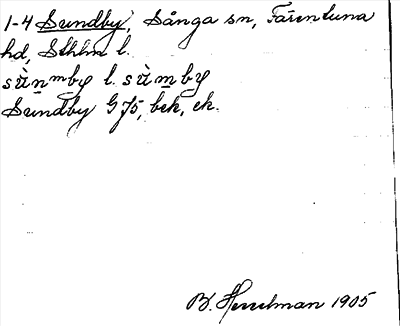 1-4 Sundby, Sånga sn, Färentuna
hd, Sthlm l.
sùnmby l. sùmby
Sundby GJb, bek, ek.
B. Hesselman 1905